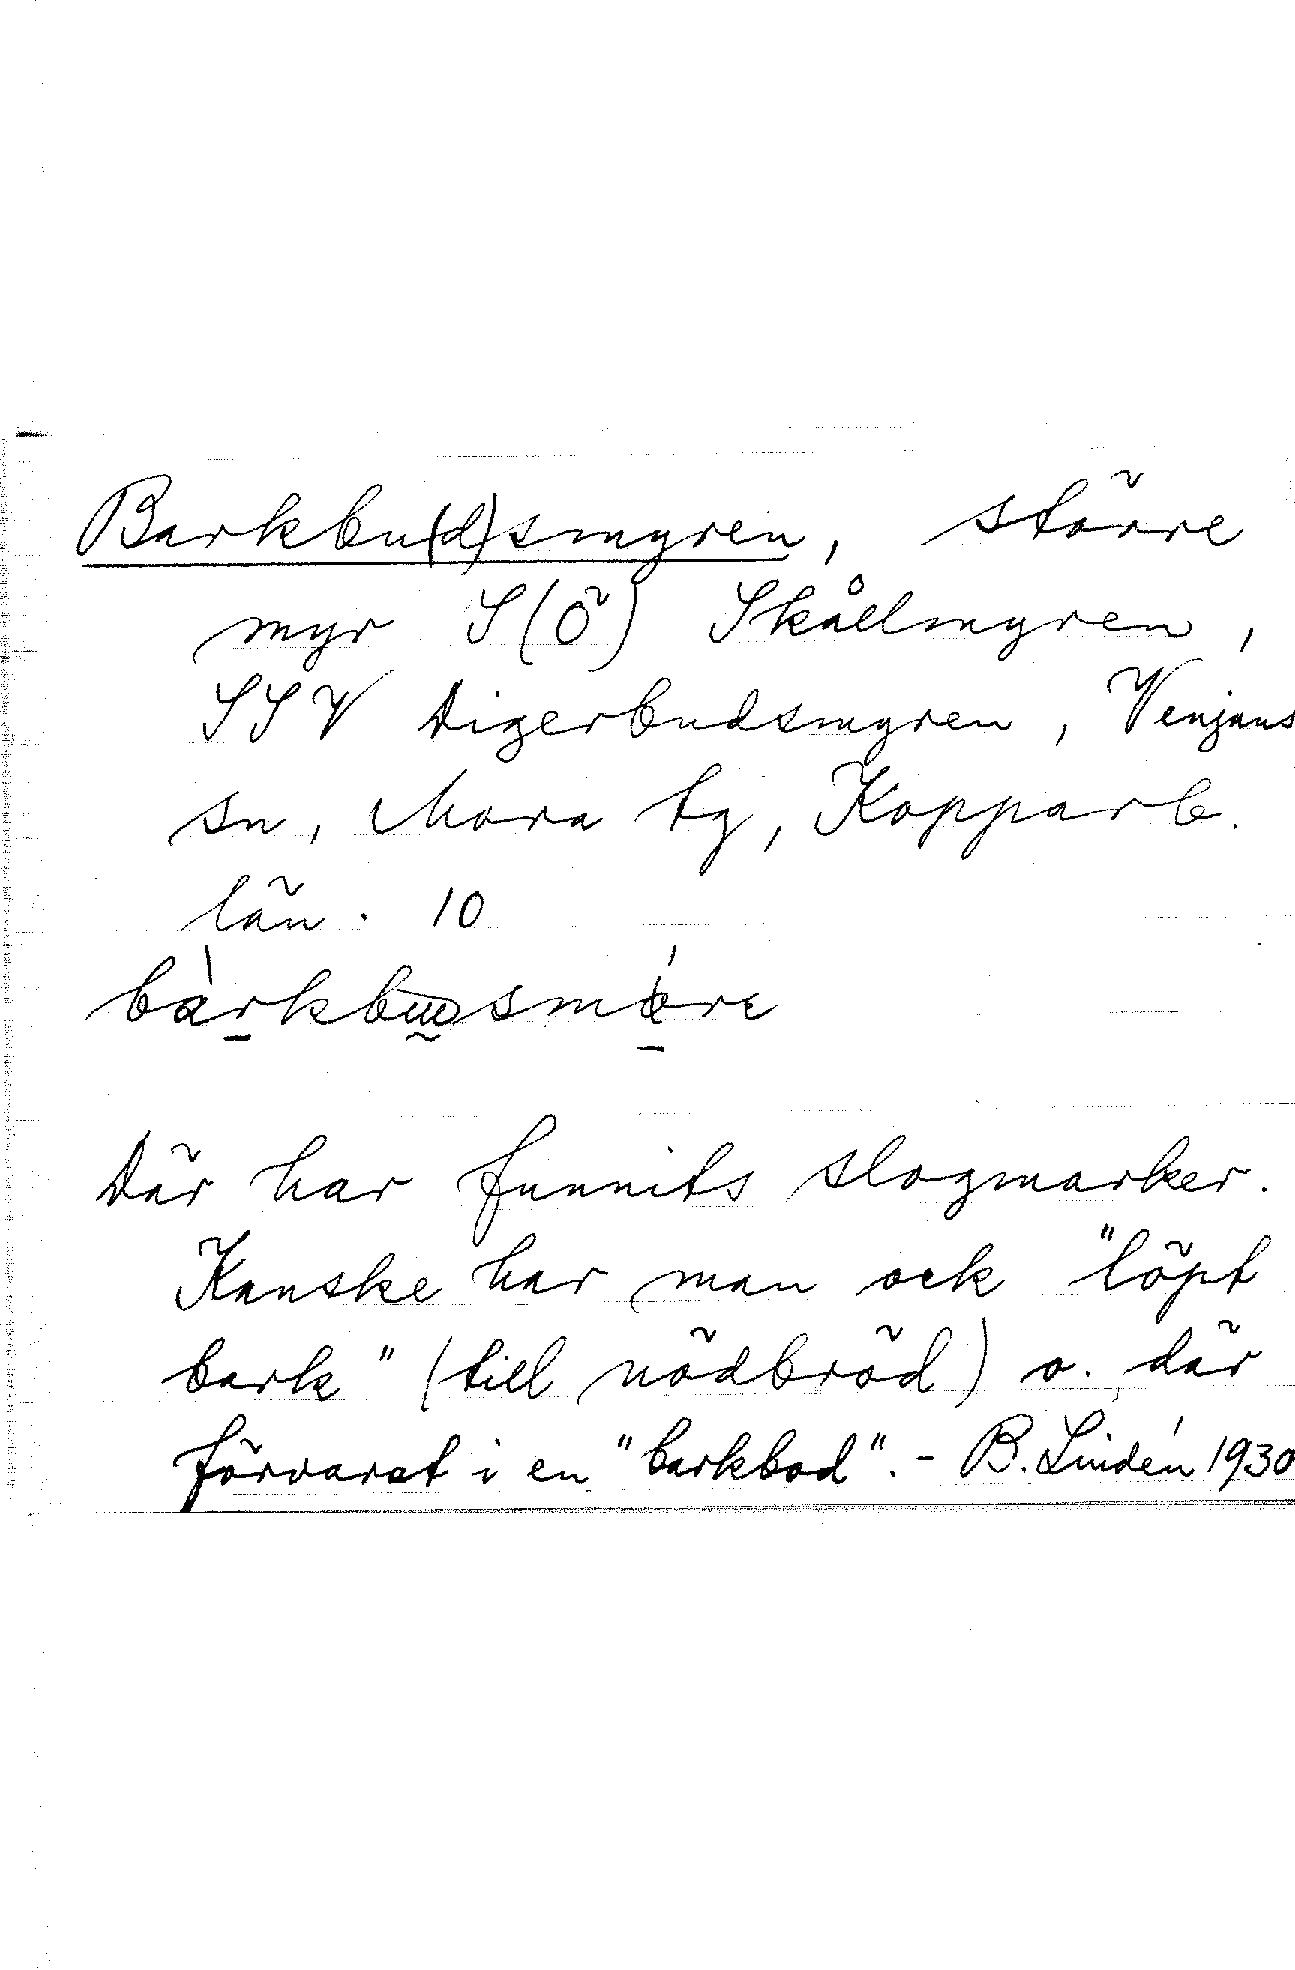 Barkbu(d)smyren, större
myr S(Ö) Skållmyren,
SSV Digerbudsmyren, Venjans
sn, Mora tg, Kopparb.
län. 10
Där har funnits slogmarker.
Kanske har man ock "löpt
bark" (till nödbröd) o. där
förvarat i en "barkbod". - B. Lindén 1930